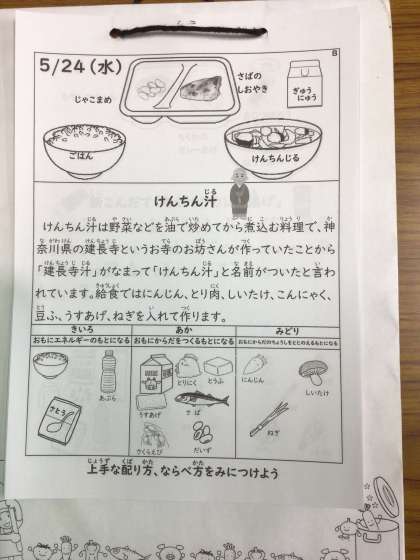 8
5/24(水)
じゃこまめ
さばの
しおやき
ぎゅう
にゅう
ごはん
けんちんじる
けんちん汁
けんちん汁は野菜などを油で炒めてから煮込む料理で、神
奈川県の建長寺というお寺のお坊さんが作っていたことから
「建長寺汁」がなまって「けんちん汁」と名前がついたと言わ
れています。給食ではにんじん、とり肉、しいたけ、こんにゃく、
豆ふ、うすあげ、ねぎを入れて作ります。
きいろ
あか
みどり
おもにエネルギーのもとになる
おもにからだをつくるもとになる
おもにからだのちょうしをととのえるもとになる
あぶら
さとう
とりにく
とうふ
うすあげ
さば
さくらえび
だいず
にんじん
しいたけ
ねぎ
上手な配り方、ならべ方をみにつけよう